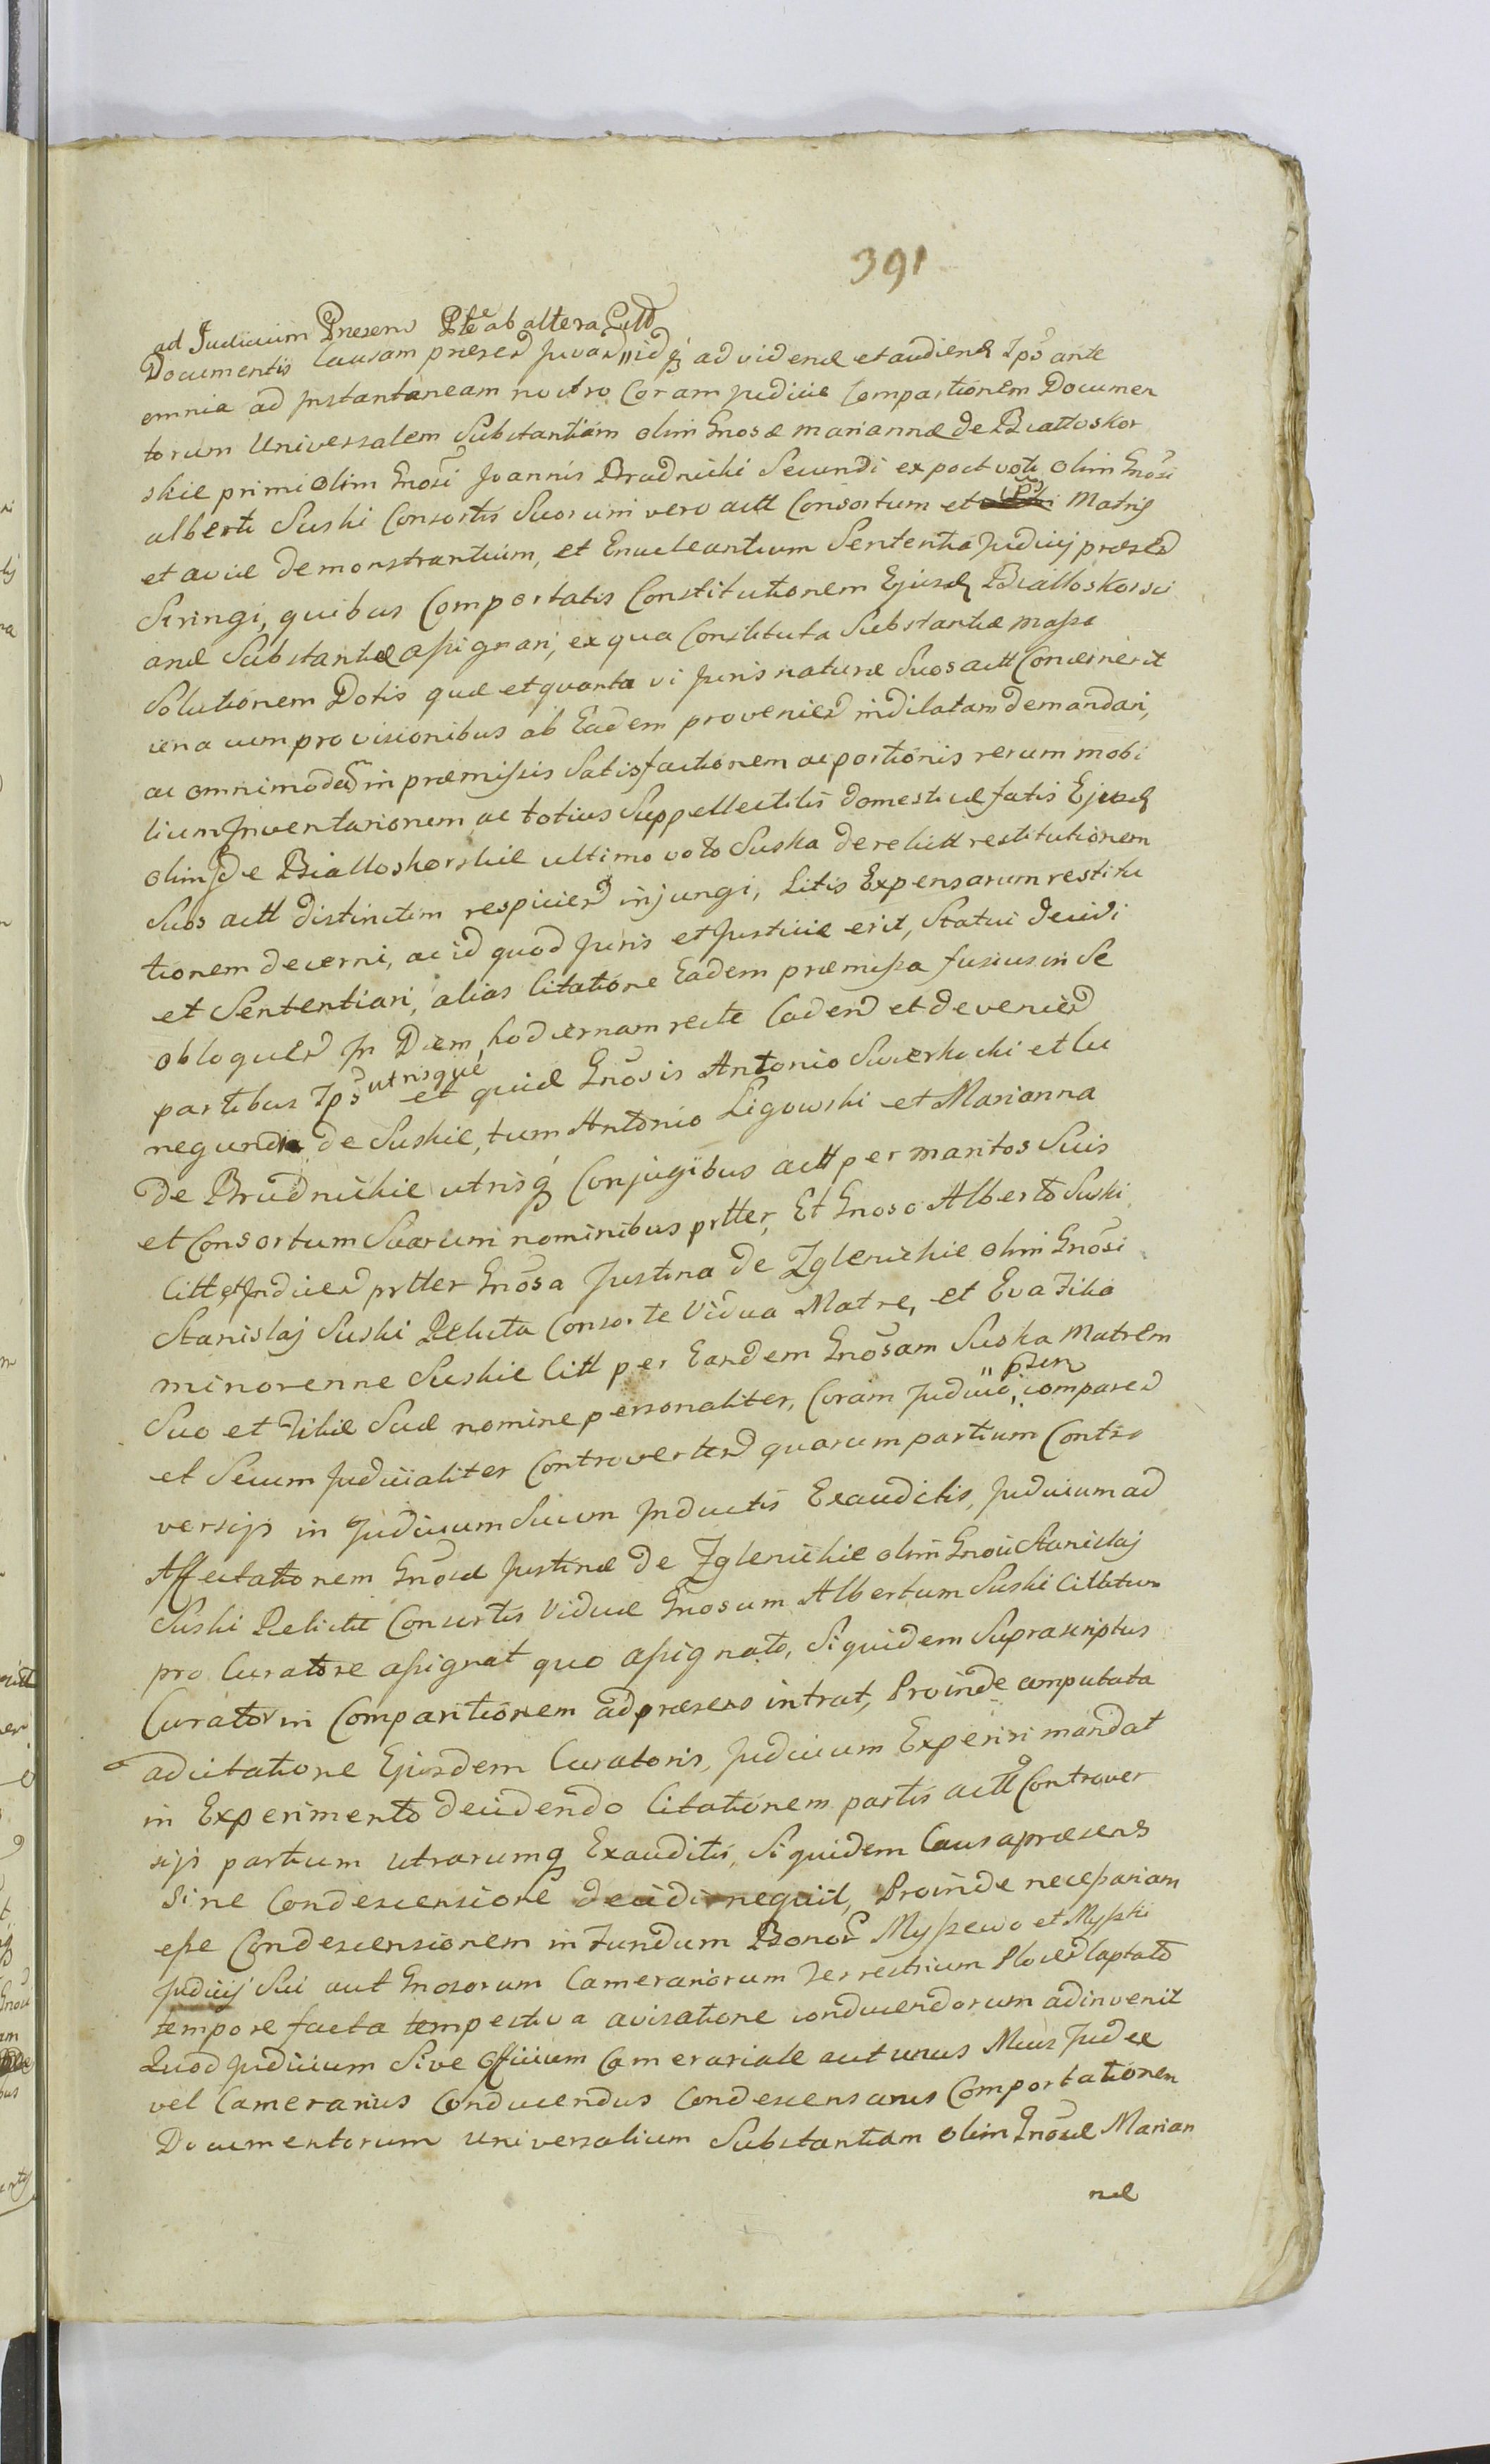 391
ad Judicium Præsens Pte ab altera Citt
Documentis Causam præsend Juvand idq ad vidend et audiend Ips ante
omnia ad Instantaneam nostro Coram Judicie Comportionem Documen
torum Universalem Substantiam olim Gnosæ mariannæ de Biattoskor
skie primi Olim Gnosi Joannis Brudnicki Secundi ex post voti olim Gnosi
alberti Suski Consortis Suorum vero actt Consortum et Ips Matris
et aviæ demonstrantium, et Enucleantium Sententia Judicij præsend
Stringi, quibus Comportatis Constitutionem Ejusd Bialloskorsci
anæ Substantiæ assignari, ex qua Constituta Substantiæ massa
Solutionem Dotis quæ et quanta vi Juris naturæ Suos actt Concernerit
una cum provisionibus ab Eadem proveniend indilatam demandari,
ac omnimodam in præmissis Satisfactionem ac portionis rerum mobi
lium Inventarionem ac totius Suppellectilis domesticæ fatis Ejusd
olim de Bialloskorskie ultimo voto Suska derelictt restitutionem
Suos actt distinctim respiciend injungi, Litis Expensarum restitu
tionem decerni, ac id quod Juris et Justiciæ erit, Statui decidi
et Sententiari, alias Citatione Eadem præmissa fusius in Se
obloquend In Diem hodiernam recte Cadend et deveniend
partibus Ips utrisque et quid Gnosis Antonio Swierkocki et Cu
negunda de Suskie, tum Antonio Ligowski et Marianna
de Brudnickie utrisq Conjugibus actt per maritos Suis
et Consortum Suarum nominibus prtter, Et Gnoso Alberto Suski
Citt et Indiced prtter Gnosa Justina de Zglenickie olim Gnosi
Stanislaj Suski Relicta Consorte Vidua Matre, et Eva Filia
minorenne Suskie Citt per Eandem Gnosam Suska Matrem
Suo et Filiæ Suæ nomine personaliter, Coram Judicio, pzen compared
et Secum Judicialiter Controvertend quarum partium Contro
versijs in Judicium Suum Inductis Exauditis, Judicium ad
Affectationem Gnosæ Justinæ de Zglenickie olim Gnosi Stanislaj
Suski Relictæ Consortis Viduæ Gnosum Albertum Suski Cittatum
pro Curatore assignat quo assignato, Siquidem Suprascriptus
Curator in Comparitionem ad præsens intrat, Proinde amputata
adcitatione Ejusdem Curatoris, Judicium Experiri mandat
in Experimento decidendo Citationem partis actt Controver
sijs partium utrarumq Exauditis, Siquidem Causa præsens
Sine Condescensione decidi nequit, Proinde necessariam
esse Condescensionem in Fundum Bonor Myszewo et Myszki
Judicij Sui aut Gnosorum Camerariorum Terrestrium Ploced Captato
tempore facta tempestiva avisatione conducendorum adinvenit
Quod Judicium Sive Officium Camerariale aut unus Meus Judex
vel Camerarius Conducendus Condescensurus Comportationem
Documentorum universalium Substantiam olim Gnosæ Marian
næ